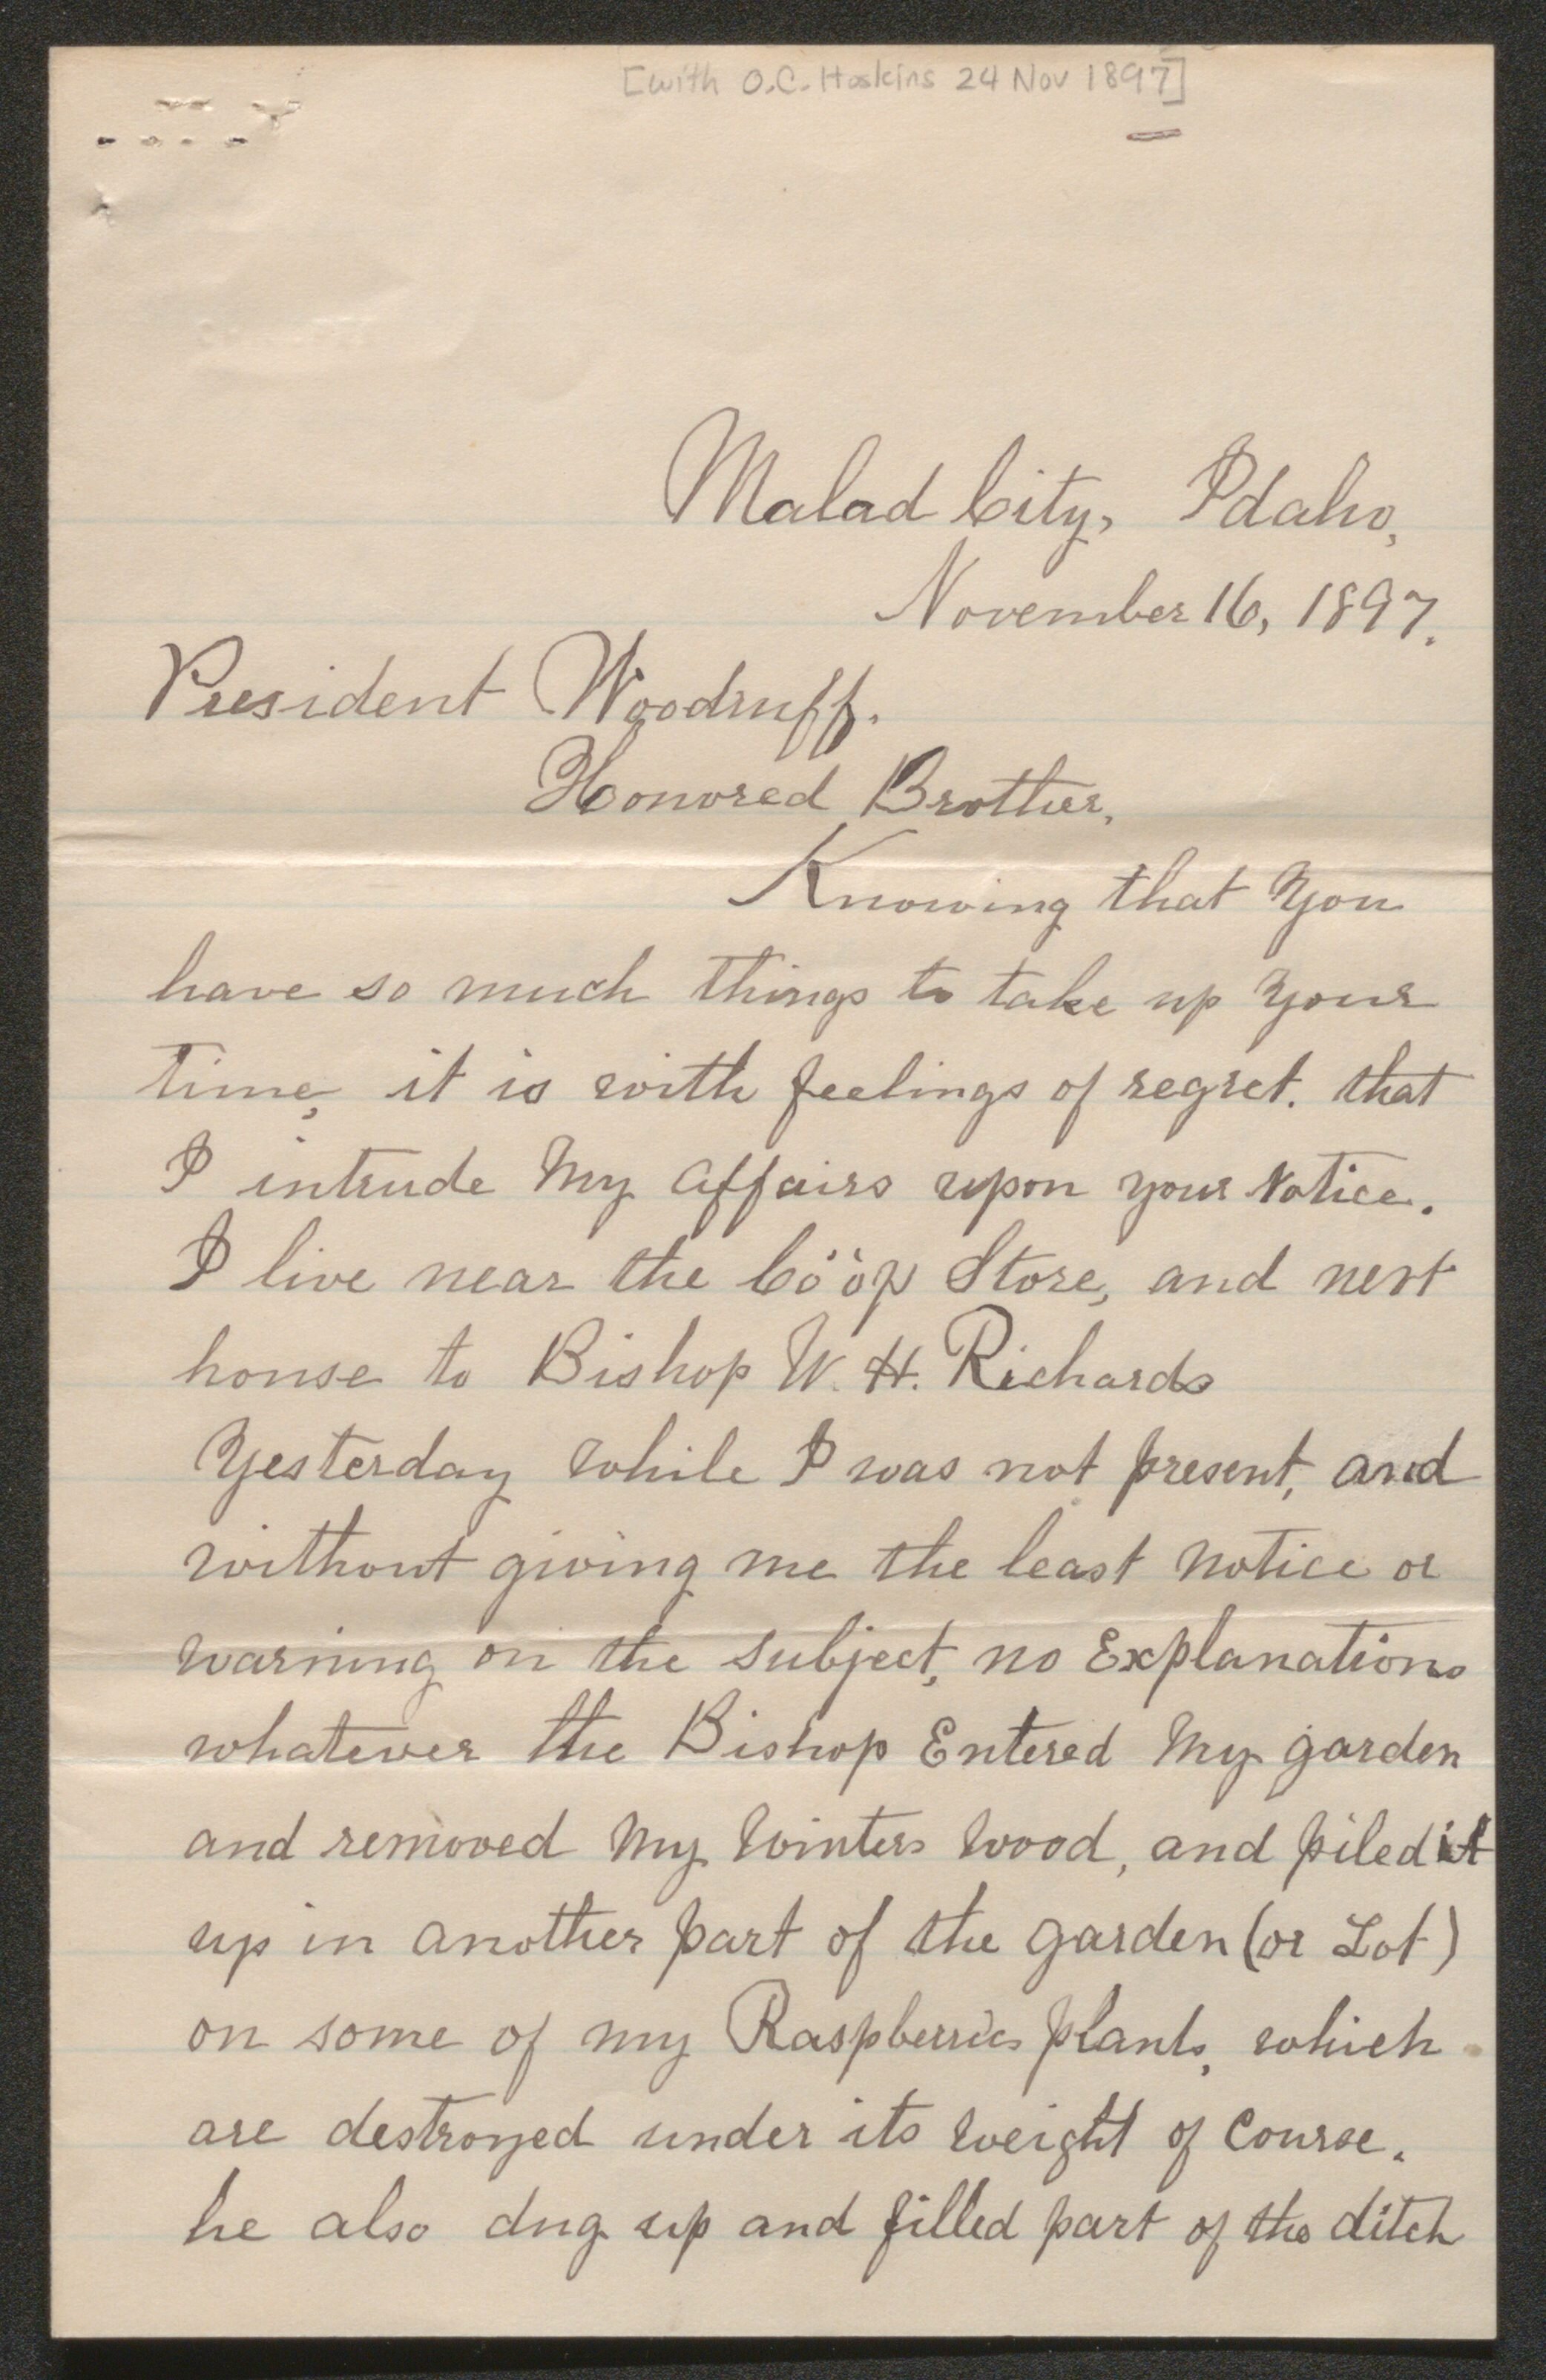 [with O.C. Hoskins 24 Nov 1897]
Malad City, Idaho,
November 16, 1897.
President Woodruff.
Honored Brother,
Knowing that You
have so much things to take up Your
time, it is with feelings of regret. that
I intrude My Affairs upon your Notice.
I live near the Cö'òp Store, and next
house to Bishop W. H. Richards
Yesterday while I was not present, and
without giving me the least notice or
warning on the subject, no Explanations
whatever the Bishop Entered My garden
and removed My Winters Wood, and piled it
up in another part of the garden (or Lot)
on some of my Raspberries plants, which
are destroyed under its weight of Course.
he also dug up and filled part of the ditch